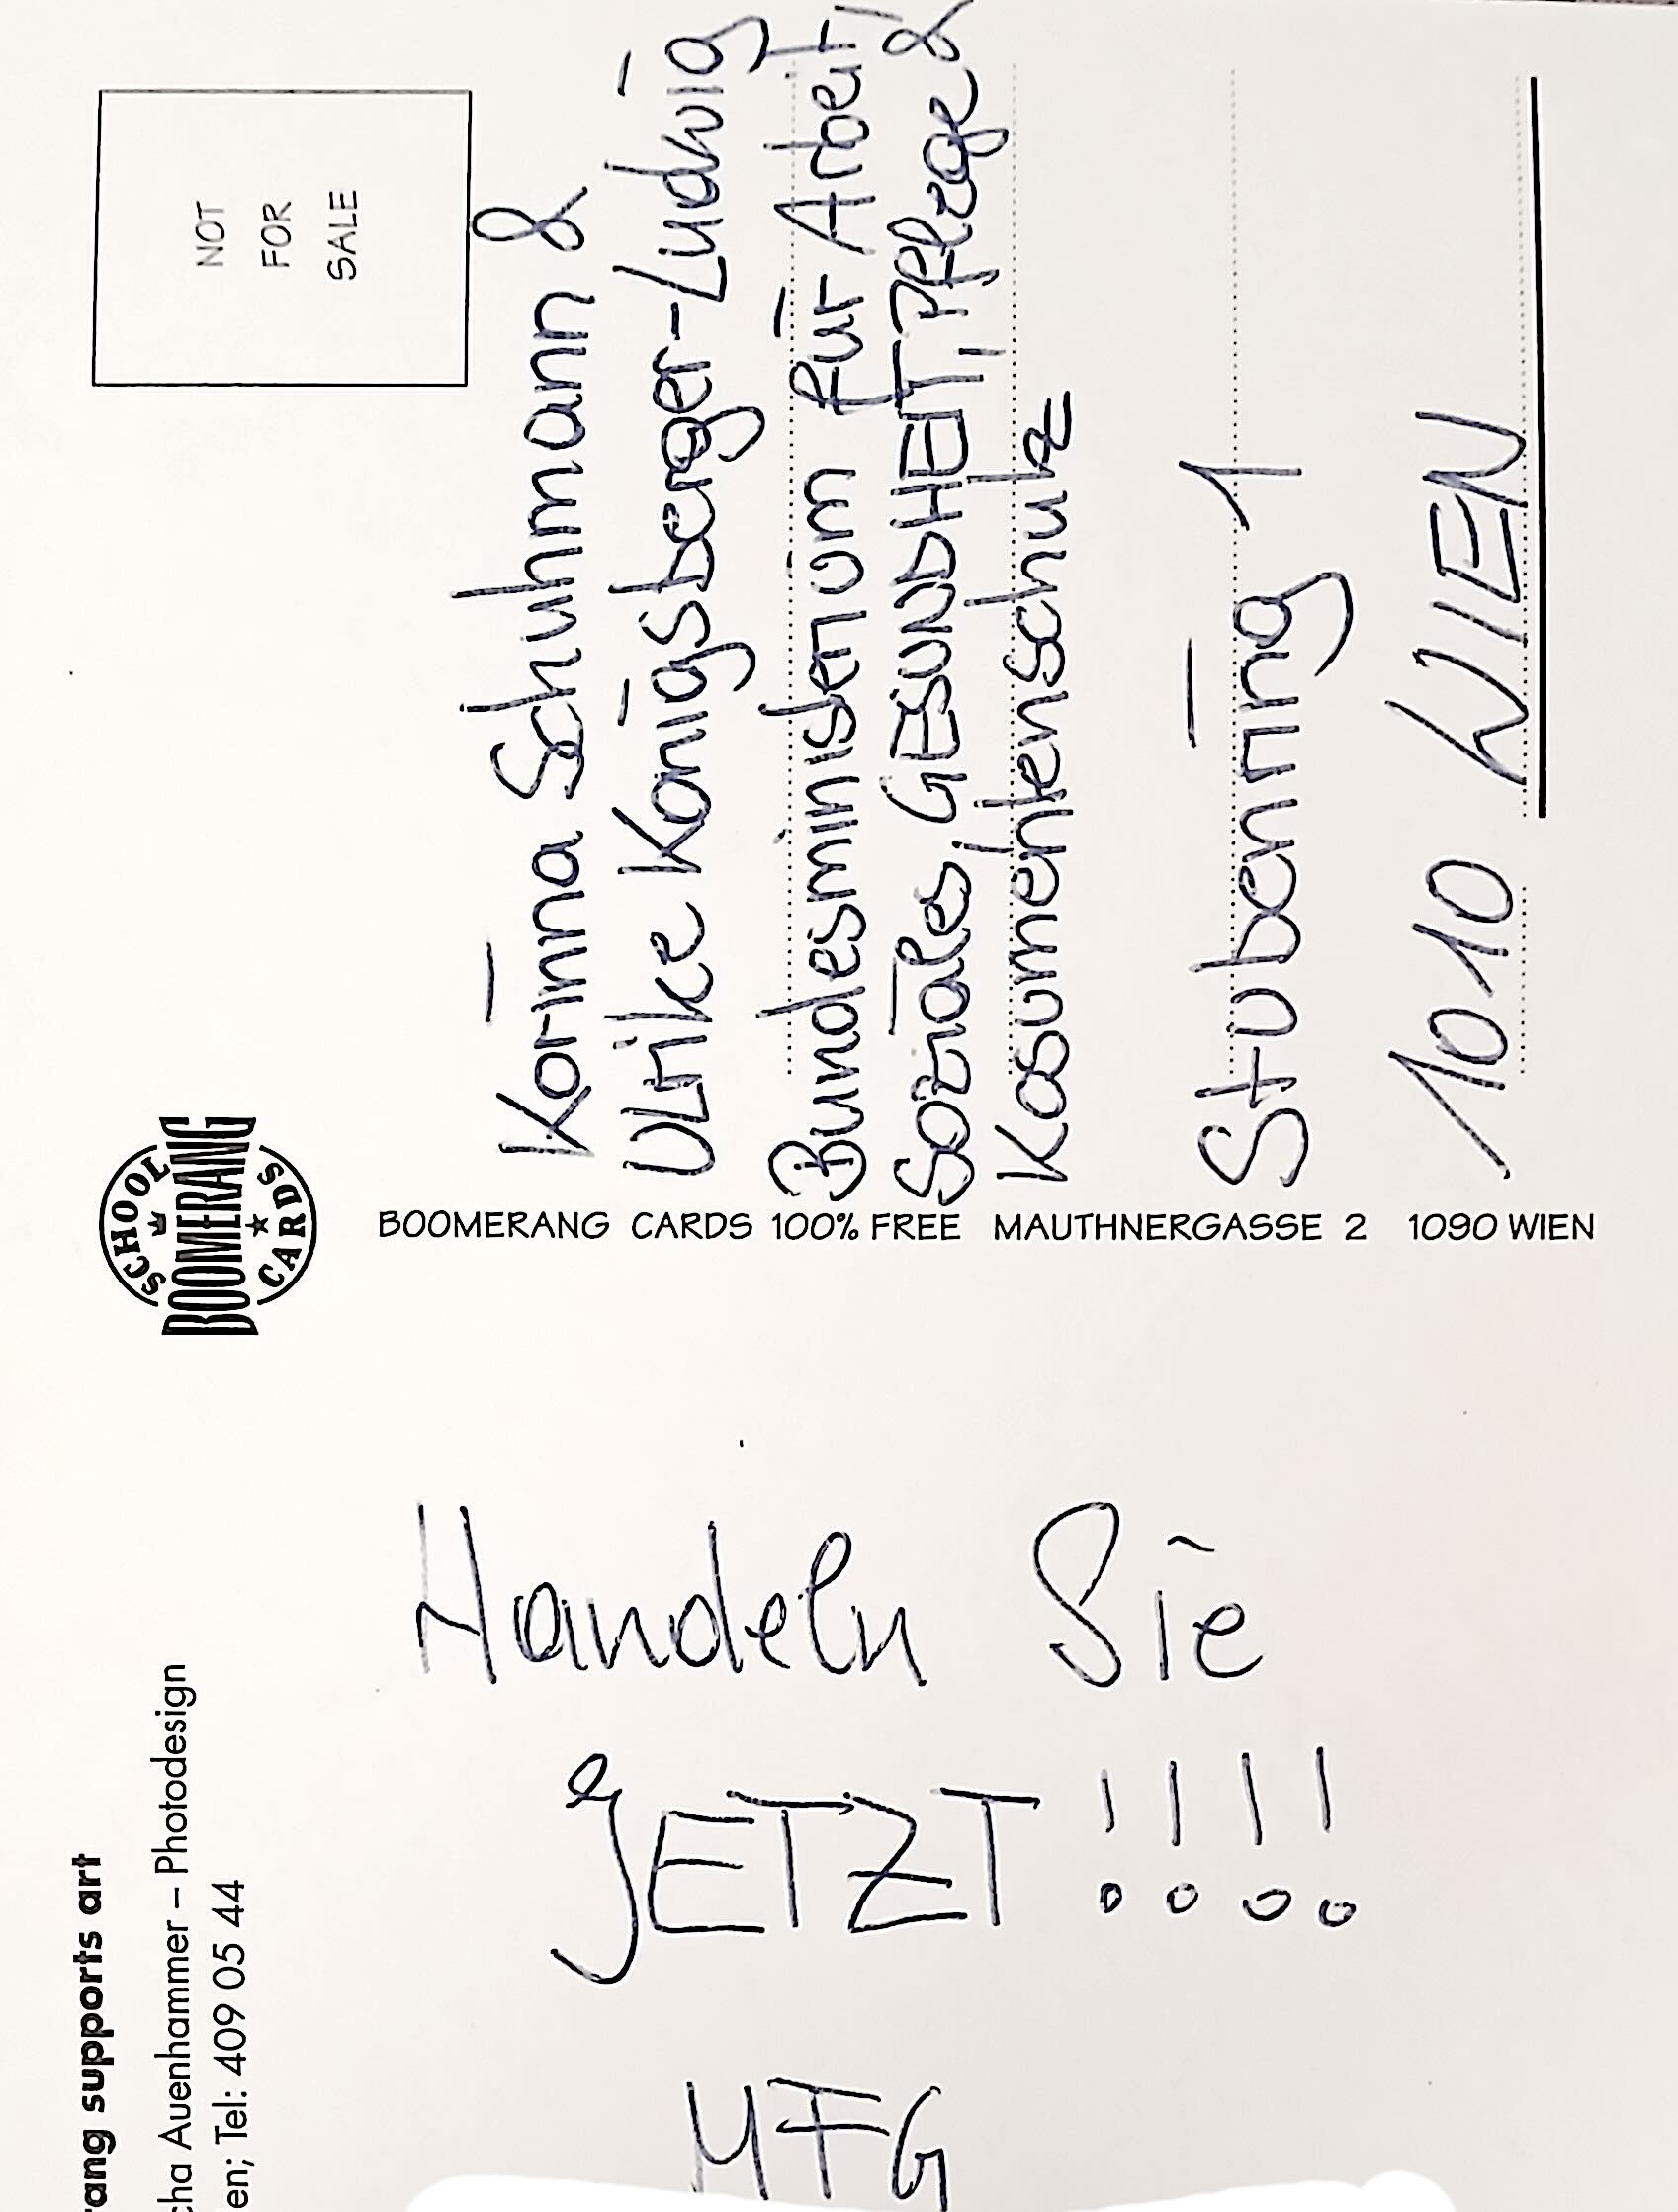 SCHOOL
BOOMERANG
CARDS
NOT
FOR
SALE
Korinna Schuhmann &
Ulrike Königsberger-Ludwig
Bundesministerium für Arbeit,
Soziales, GESUNDHEIT, Pflege &
Kosumentenschutz
Stubenring 1
1010 WIEN
BOOMERANG CARDS 100% FREE MAUTHNERGASSE 2 1090 WIEN
Handeln Sie
JETZT !!!!
MFG
rang supports art
cha Auenhammer – Photodesign
en; Tel: 409 05 44